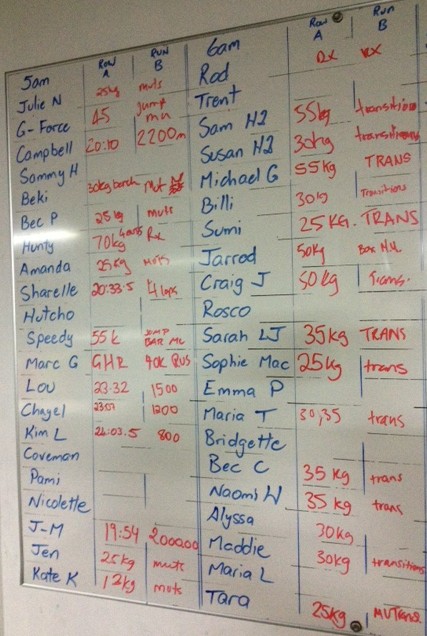 5am Row A Run B
Julie N 25kg muts
G-Force 45 Jump mu
Campbell 20:10 2200m
Sammy H
Beki 30kg bench mut
Bec P 25kg muts
Hunty 70kg Rx
Amanda 25kg muts
Sharelle 20:33.5 4 laps
Hutcho
Speedy 55k JUMP BAR MU
Marc G GHR 40K RUS
Lou 23:32 1500
Chayel 1200
Kim L 24:03.5 800
Coveman
Pami
Nicolette
J-M 19:54 2000.00
Jen 25kg muts
Kate K 12kg mots
6am Row A Run B
Rod Rx RX
Trent
Sam H2 55kg transition
Susan H2 30kg transitions
Michael G 55kg TRANS
Billi 30kg Transitions
Sumi 25KG. TRANS
Jarrod 50kg Bar MU
Craig J 50kg Trans.
Rosco
Sarah LJ 35kg TRANS
Sophie Mac 25kg trans
Emma P
Maria T 30,35 trans
Bridgette
Bec C 35kg trans
Naomi W 35kg trans
Alyssa
Maddie 30kg
Maria L 30kg transitions
Tara 25kg